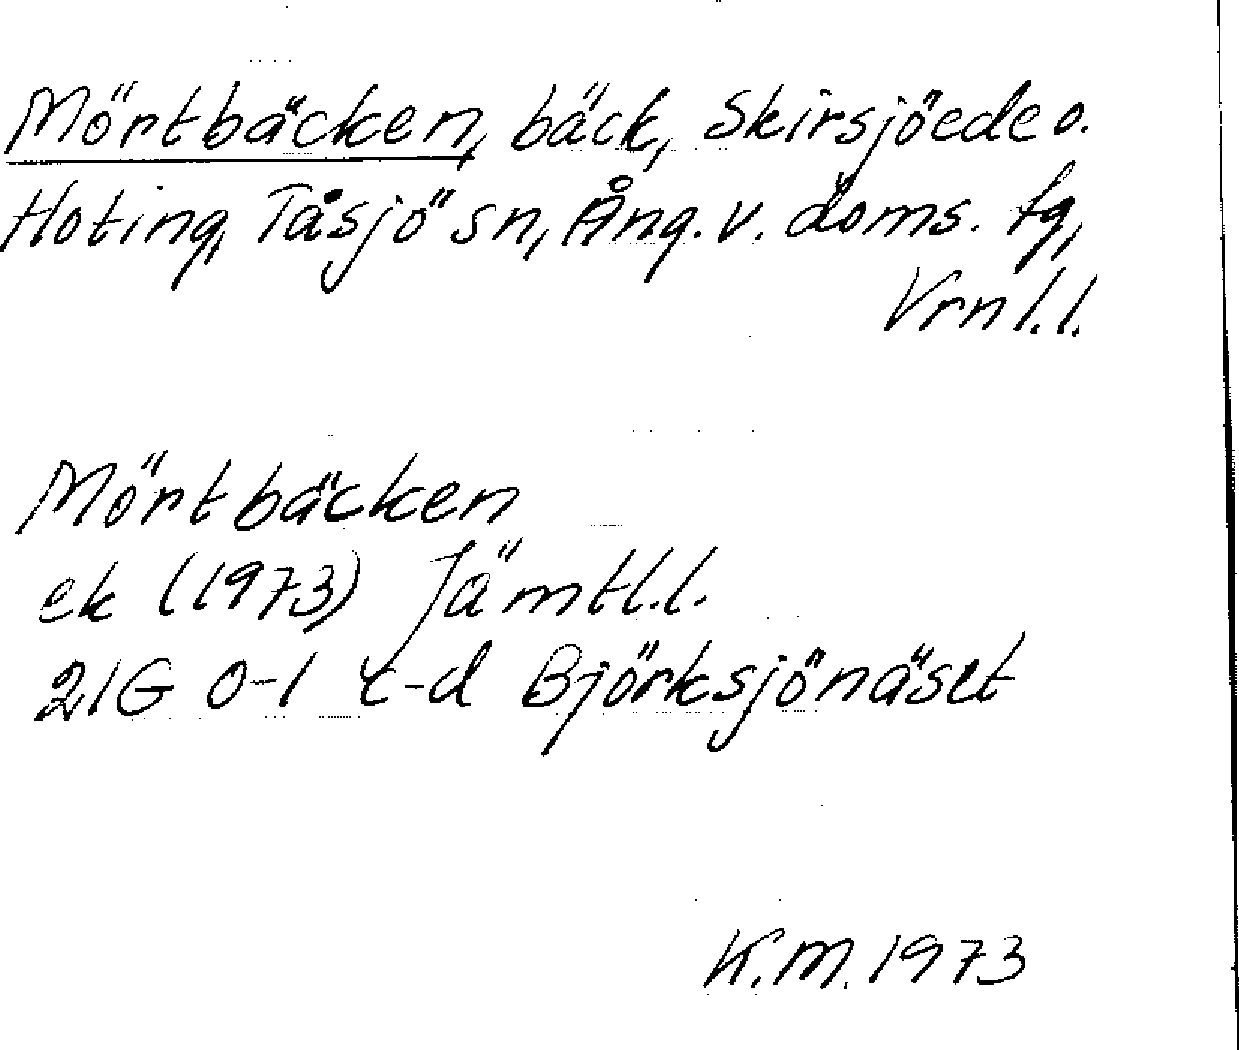 Mörtbäcken, bäck, Skirsjöede o.
Hoting, Tåsjö sn, Ång. v. doms. fg,
Vrnl.l.
Mörtbäcken
ek (1973) Jämtl.l.
21G 0-1 c-d Björksjönäset
K.M. 1973